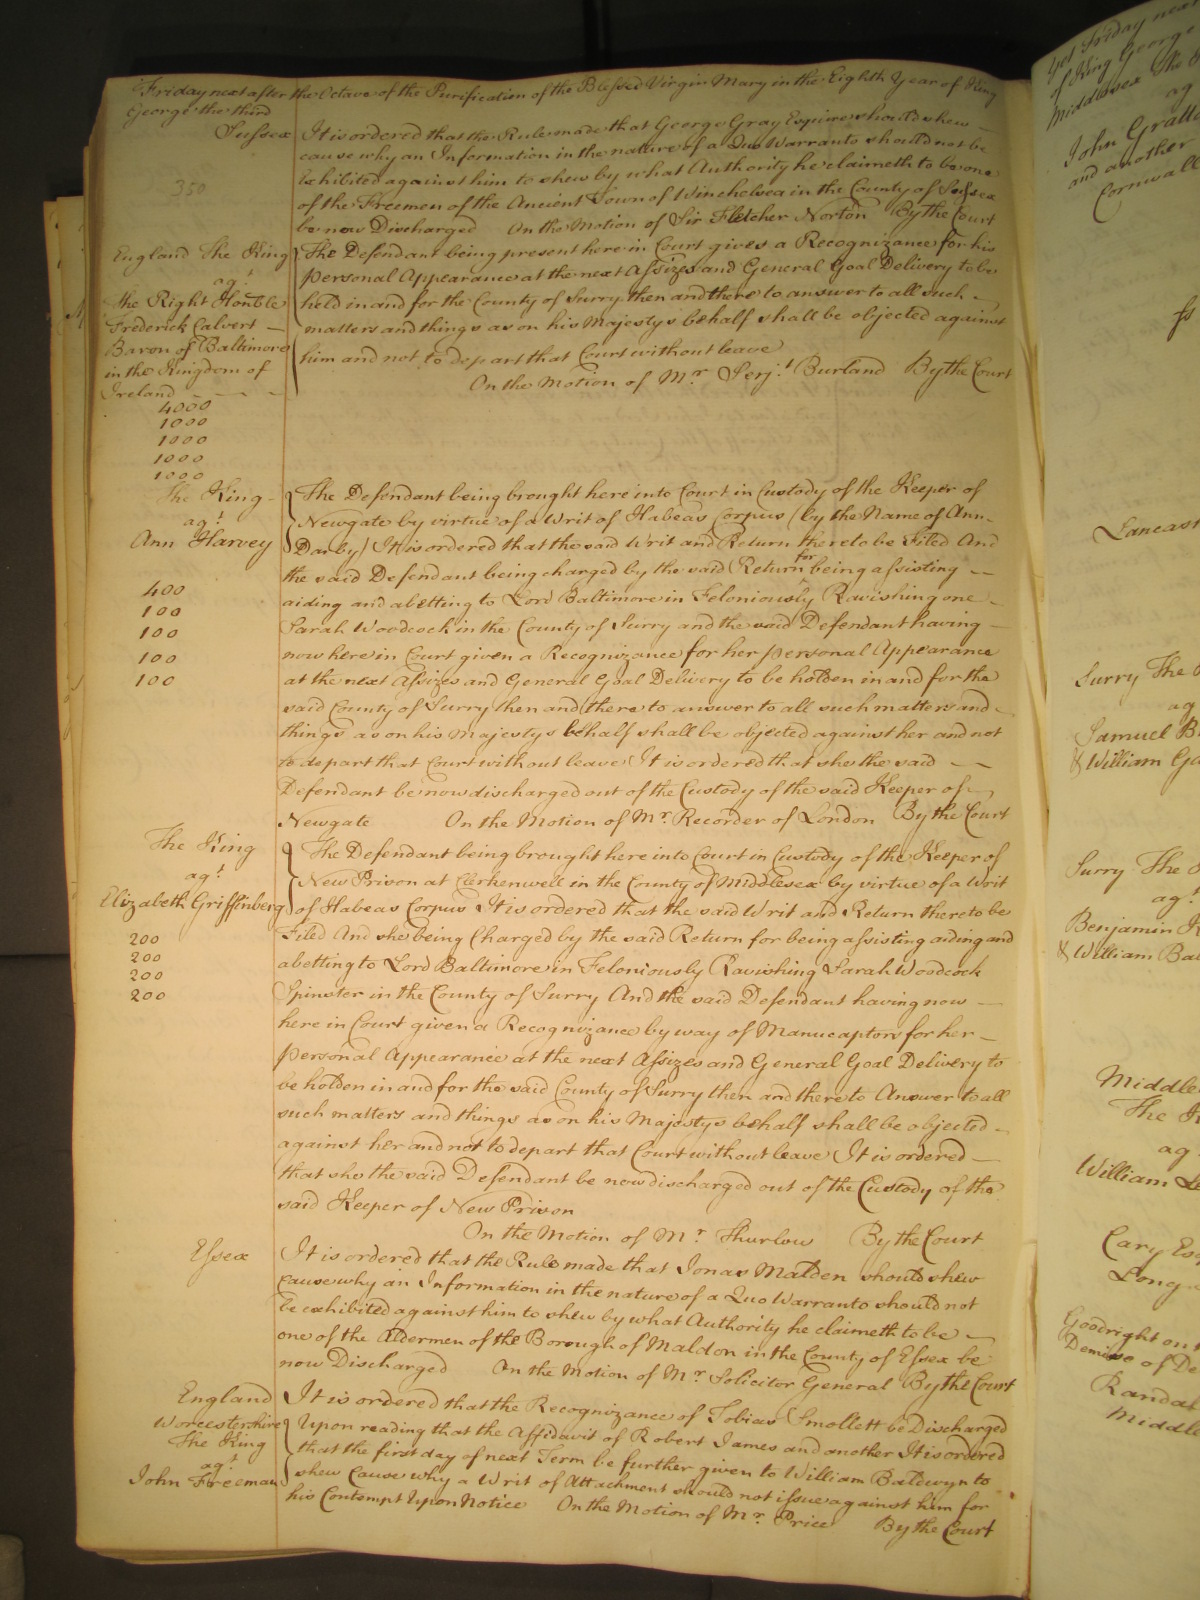 Friday next after the Octave of the Purification of the Blessed Virgin Mary in the Eighth Year of King
George the third
Sussex It is ordered that the Rule made that George Gray Esquire should shew
cause why an Information in the nature of a Quo Warranto should not be
exhibited against him to shew by what Authority he claimeth to be one
350
of the Freemen of the Ancient Town of Winchelsea in the County of Sussex
be now Discharged On the Motion of Sir Fletcher Norton By the Court
England The King
agt
The Right Honble
Frederick Calvert —
Baron of Baltimore
in the Kingdom of
Ireland - - -
4000
1000
1000
1000
1000
The Defendant being present here in Court gives a Recognizance for his
personal Appearance at the next Assizes and General Goal Delivery to be
held in and for the County of Surry then and there to answer to all such —
matters and things as on his Majestys behalf shall be objected against
him and not to depart that Court without leave
On the Motion of Mr Serjt Burland By the Court
The King -
agt
Ann Harvey
400
100
100
100
100
The Defendant being brought here into Court in Custody of the Keeper of
Newgate by virtue of a Writ of Habeas Corpus (by the Name of Ann
Darby) It is ordered that the said Writ and Return thereto be Filed And
the said Defendant being charged by the said Return for being assisting —
aiding and abetting to Lord Baltimore in Feloniously Ravishing one -
Sarah Woodcock in the County of Surry and the said Defendant having —
now here in Court given a Recognizance for her personal Appearance
at the next Assizes and General Goal Delivery to be holden in and for the
said County of Surry then and there to answer to all such matters and -
things as on his Majestys behalf shall be objected against her and not
to depart that Court without leave It is ordered that she the said — —
Defendant be now discharged out of the Custody of the said Keeper of —
Newgate On the Motion of Mr Recorder of London By the Court
The King
agt
Elizabeth Griffinberg
200
200
200
200
The Defendant being brought here into Court in Custody of the Keeper of
New Prison at Clerkenwell in the County of Middlesex by virtue of a Writ
of Habeas Corpus It is ordered that the said Writ and Return thereto be
Filed And she being Charged by the said Return for being assisting aiding and
abetting to Lord Baltimore in Feloniously Ravishing Sarah Woodcock
Spinster in the County of Surry And the said Defendant having now —
here in Court given a Recognizance by way of Manucaptors for her —
personal Appearance at the next Assizes and General Goal Delivery to
be holden in and for the said County of Surry then and there to Answer to all
such matters and things as on his Majestys behalf shall be objected -
against her and not to depart that Court without leave It is ordered —
that she the said Defendant be now discharged out of the Custody of the
said Keeper of New Prison
On the Motion of Mr Thurlow By the Court
Essex It is ordered that the Rule made that Jonas Malden should shew
cause why an Information in the nature of a Quo Warranto should not
be exhibited against him to shew by what Authority he claimeth to be —
one of the Aldermen of the Borough of Maldon in the County of Essex be
now Discharged On the Motion of Mr Solicitor General By the Court
England It is ordered that the Recognizance of Tobias Smollett be Discharged
Worcestershire
The King
agt
John Freeman
Upon reading that the Affidavit of Robert James and another It is ordered
that the first day of next Term be further given to William Baldwyn to -
shew Cause why a Writ of Attachment should not issue against him for
his Contempt Upon Notice On the Motion of Mr Price By the Court
Yet Friday next
of King George
Middlesex The
ag
John Gratto
and another
Cornwall
Surry The
ag
Samuel
& William
Surry The
agt
Benjamin
& William
The
ag
William
Cary
Long
Goodright on
Demise of De